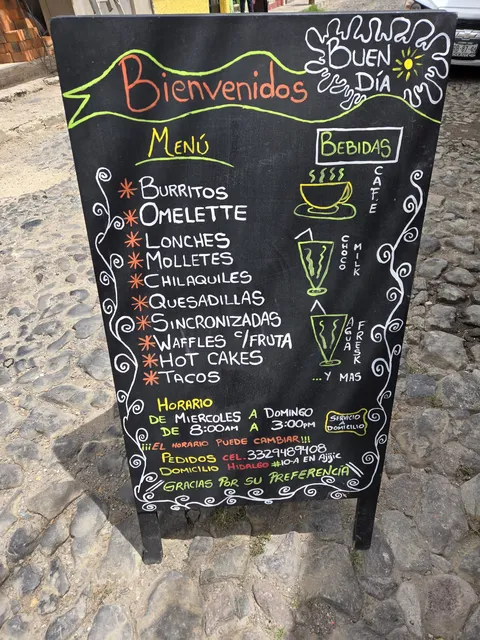 Bienvenidos
BUEN
DÍA
MENÚ
BEBIDAS
* BURRITOS
* OMELETTE
* LONCHES
* MOLLETES
* CHILAQUILES
* QUESADILLAS
* SINCRONIZADAS
* WAFFLES C/FRUTA
* HOT CAKES
* TACOS
CAFE
CHOCO
MILK
AGUA
FRESK
...Y MAS
HORARIO
DE MIERCOLES A DOMINGO
DE 8:00AM A 3:00PM
SERVICIO
A DOMICILIO
¡¡¡EL HORARIO PUEDE CAMBIAR!!!
PEDIDOS CEL. 3329489408
DOMICILIO HIDALGO #10-A EN Ajijic
GRACIAS POR SU PREFERENCIA